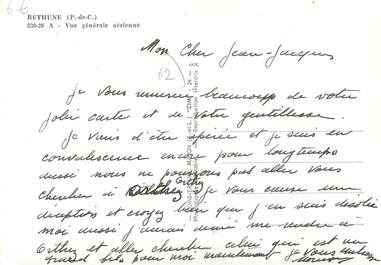 6-6
BETHUNE (P.-de-C.)
236-26 A - Vue générale aérienne
62
Mon Cher Jean-Jacques
Je vous remercie beaucoup de votre
jolie carte et de votre gentillesse.
Je viens d'être opérée et je suis en
convalescence encore pour longtemps
aussi nous ne pourrons pas aller vous
chercher à Orthez je vous cause une
déception et croyez bien que j'en suis désolée
moi aussi j'aurais désiré me rendre à
Orthez et aller chercher celui qui est un
grand fils pour moi maintenant je vous